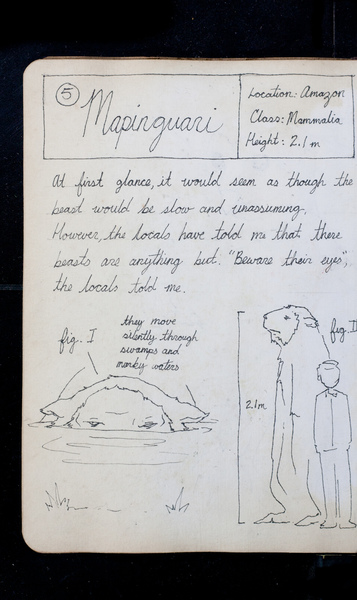 5
Mapinguari
Location: Amazon
Class: Mammalia
Height: 2.1 m
At first glance, it would seem as though the
beast would be slow and unassuming.
However, the locals have told me that there
beasts are anything but. "Beware their eyes",
the locals told me.
fig. I
they move
silently through
swamps and
murky waters
fig. I
2.1m